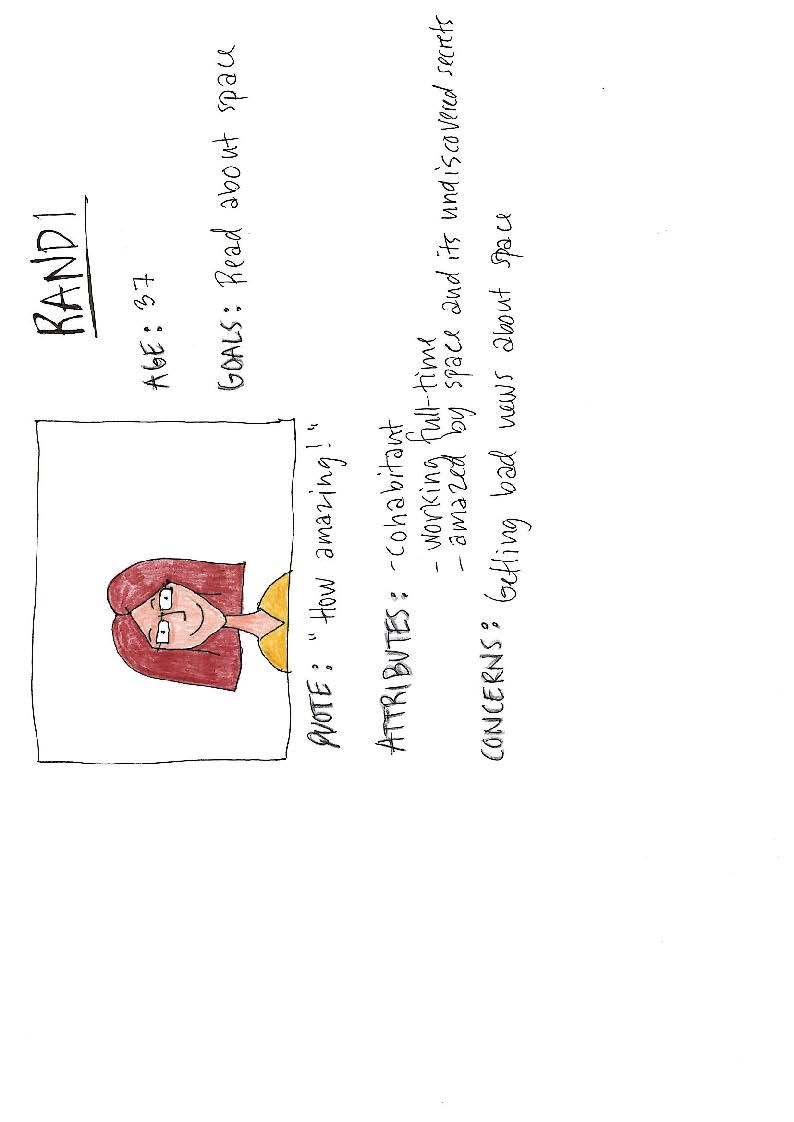 RANDI
AGE: 37
GOALS: Read about space
QUOTE: "How amazing!"
ATTRIBUTES: - cohabitant
- working full-time
- amazed by space and its undiscovered secrets
CONCERNS: Getting bad news about space